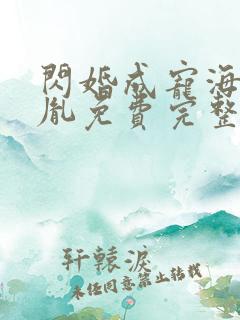 閃婚成寵海
胤免費完整
轩辕淚
未经同意禁止转载